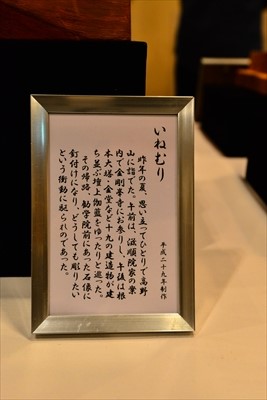 いねむり
平成二十九年制作
昨年の夏、思い立ってひとりで高野
山に詣でた。午前は、滋順院家の案
内で金剛峯寺にお参りし、午後は根
本大塔・金堂など十九の建造物が建
ち並ぶ壇上伽藍をゆったりと巡った。
その帰路、勧学院前にあった石俵に
釘付けになり、どうしても彫りたい
という衝動に駆られのであった。